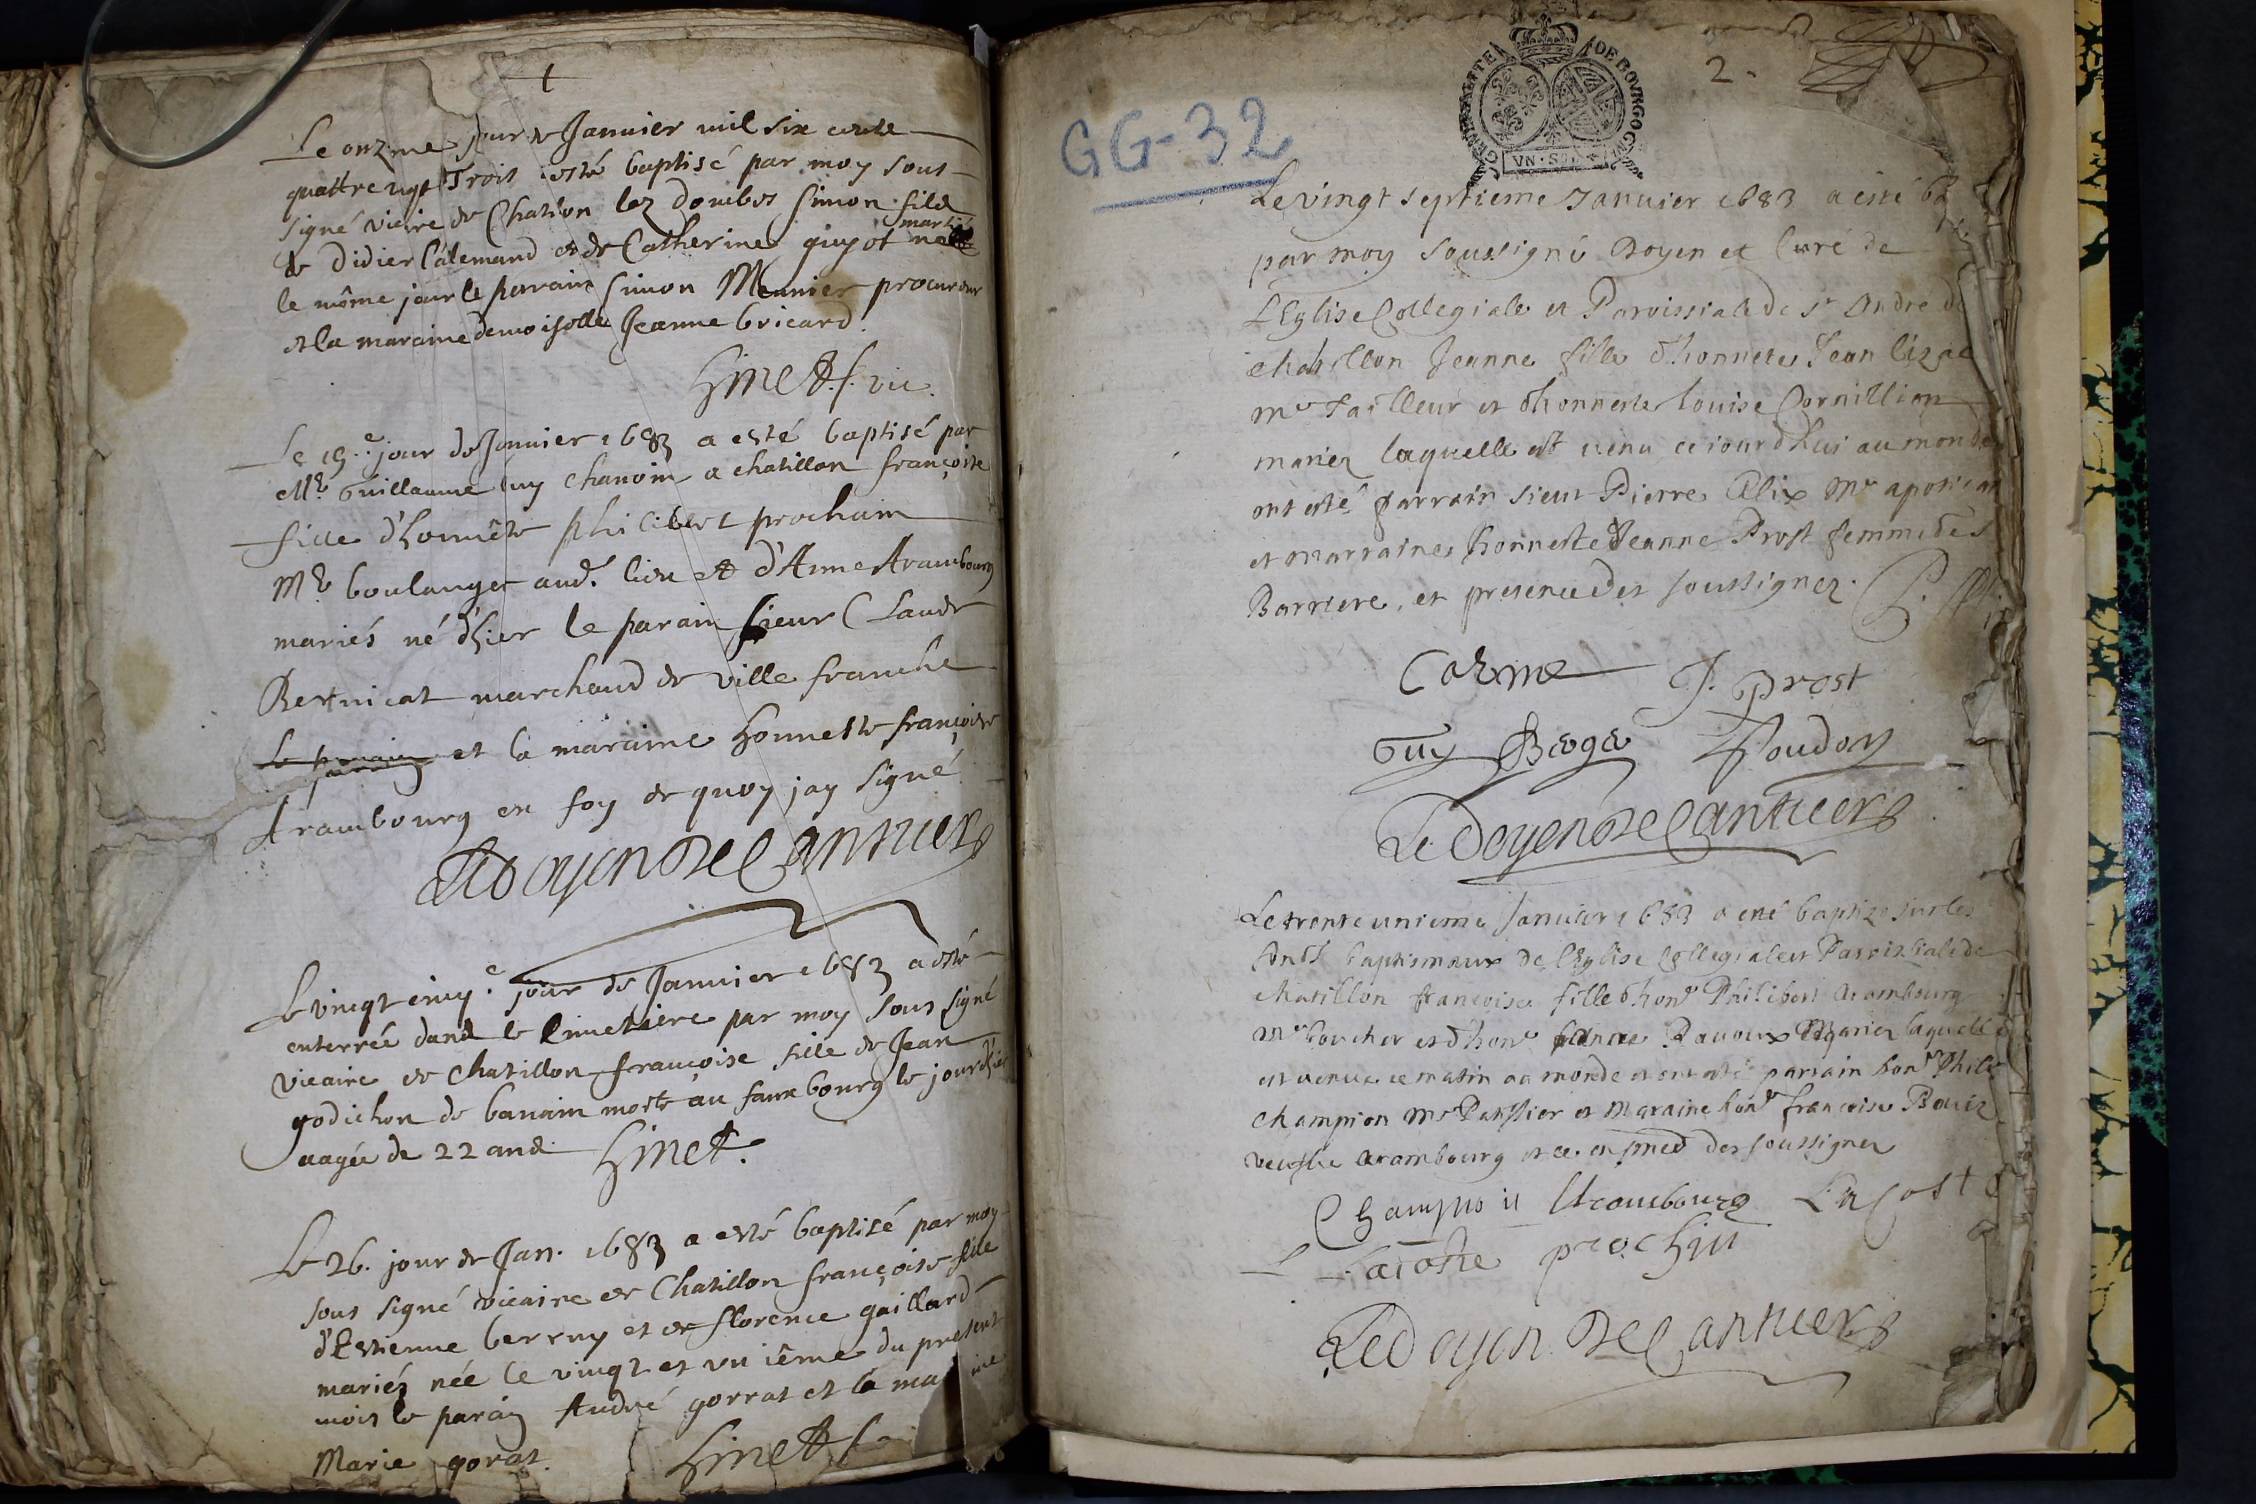 Le onzme jour de Januier mil six cents
quattre vigt Trois esté baptisé par moy sous
signé vicire de Chatlon lez dombes simon fils
de Didier Lalemand et de Catherine guyot mariés
le même jour le parain simon Meunier procureur
et la maraine demoiselle Jeanne bricard.
vic.
Le 19.e jour de Januier 1683 a esté baptisé par
Mr. Guillaume Guy chanoin a chatillon françoise
fille d'honnête philibert prochain
Mr boulanger aud. lieu et d'Anne Arambourg
mariés né d'hier le parain sieur Claude
Bernicat marchand de ville franche
et la maraine honneste françoise
Arambourg en foy de quoy jay signé
Le Doyen De Cantuer
Le vingt cinq.e jour de Januier 1683 a esté
enterrée dans le Cimetiere par moy sous signé
vicaire de chatillon françoise fille de Jean
godichon de banain morte au faux bourg le jour d'hier
aagée de 22 ans.
Le 26. jour de Jan. 1683 a esté baptisé par moy
sous signé vicaire de Chatillon françoise fille
d'Estienne berruy et de florence gaillard
mariés née le vingt et vn iême du present
mois le parain André gorrat et la ma ine
Marie gorat.
GENERALITE DE BOVRGOGNE
VN·SOL
2.
GG-32
Le vingt septieme Januier 1683 a esté ba
par moy soussigné Doyen et Curé de
L'Eglise Collegiale et Paroissiale de st André de
chatillon Jeanne fille d'honneste Jean
mr tailleur et d'honneste Louise Cornillion
mariez laquelle est venu ce iourd'hui au monde
ont esté parrain sieur Pierre Alix Mr
et marraine honneste Jeanne Prost femme de s
Barriere, et presence des soussignez. P. Alix
J. prost
Guy
Le Doyen De Cantuer
Le trente unieme Januier 1683 a esté baptizé sur les
fonds baptismaux de l'Eglise Collegiale et Paroissiale de
chatillon françoise fille d'hone Philibert Arambourg
mr boucher et d'hone mariez laquelle
est venue ce matin au monde et ont esté parrain hone Phile
Champion Mr Patissier et Maraine hone françoise
Arambourg et ce en pnce des soussignez
Champion Arambourg Lacoste
Lacoste prochin
Le Doyen De Cantuer